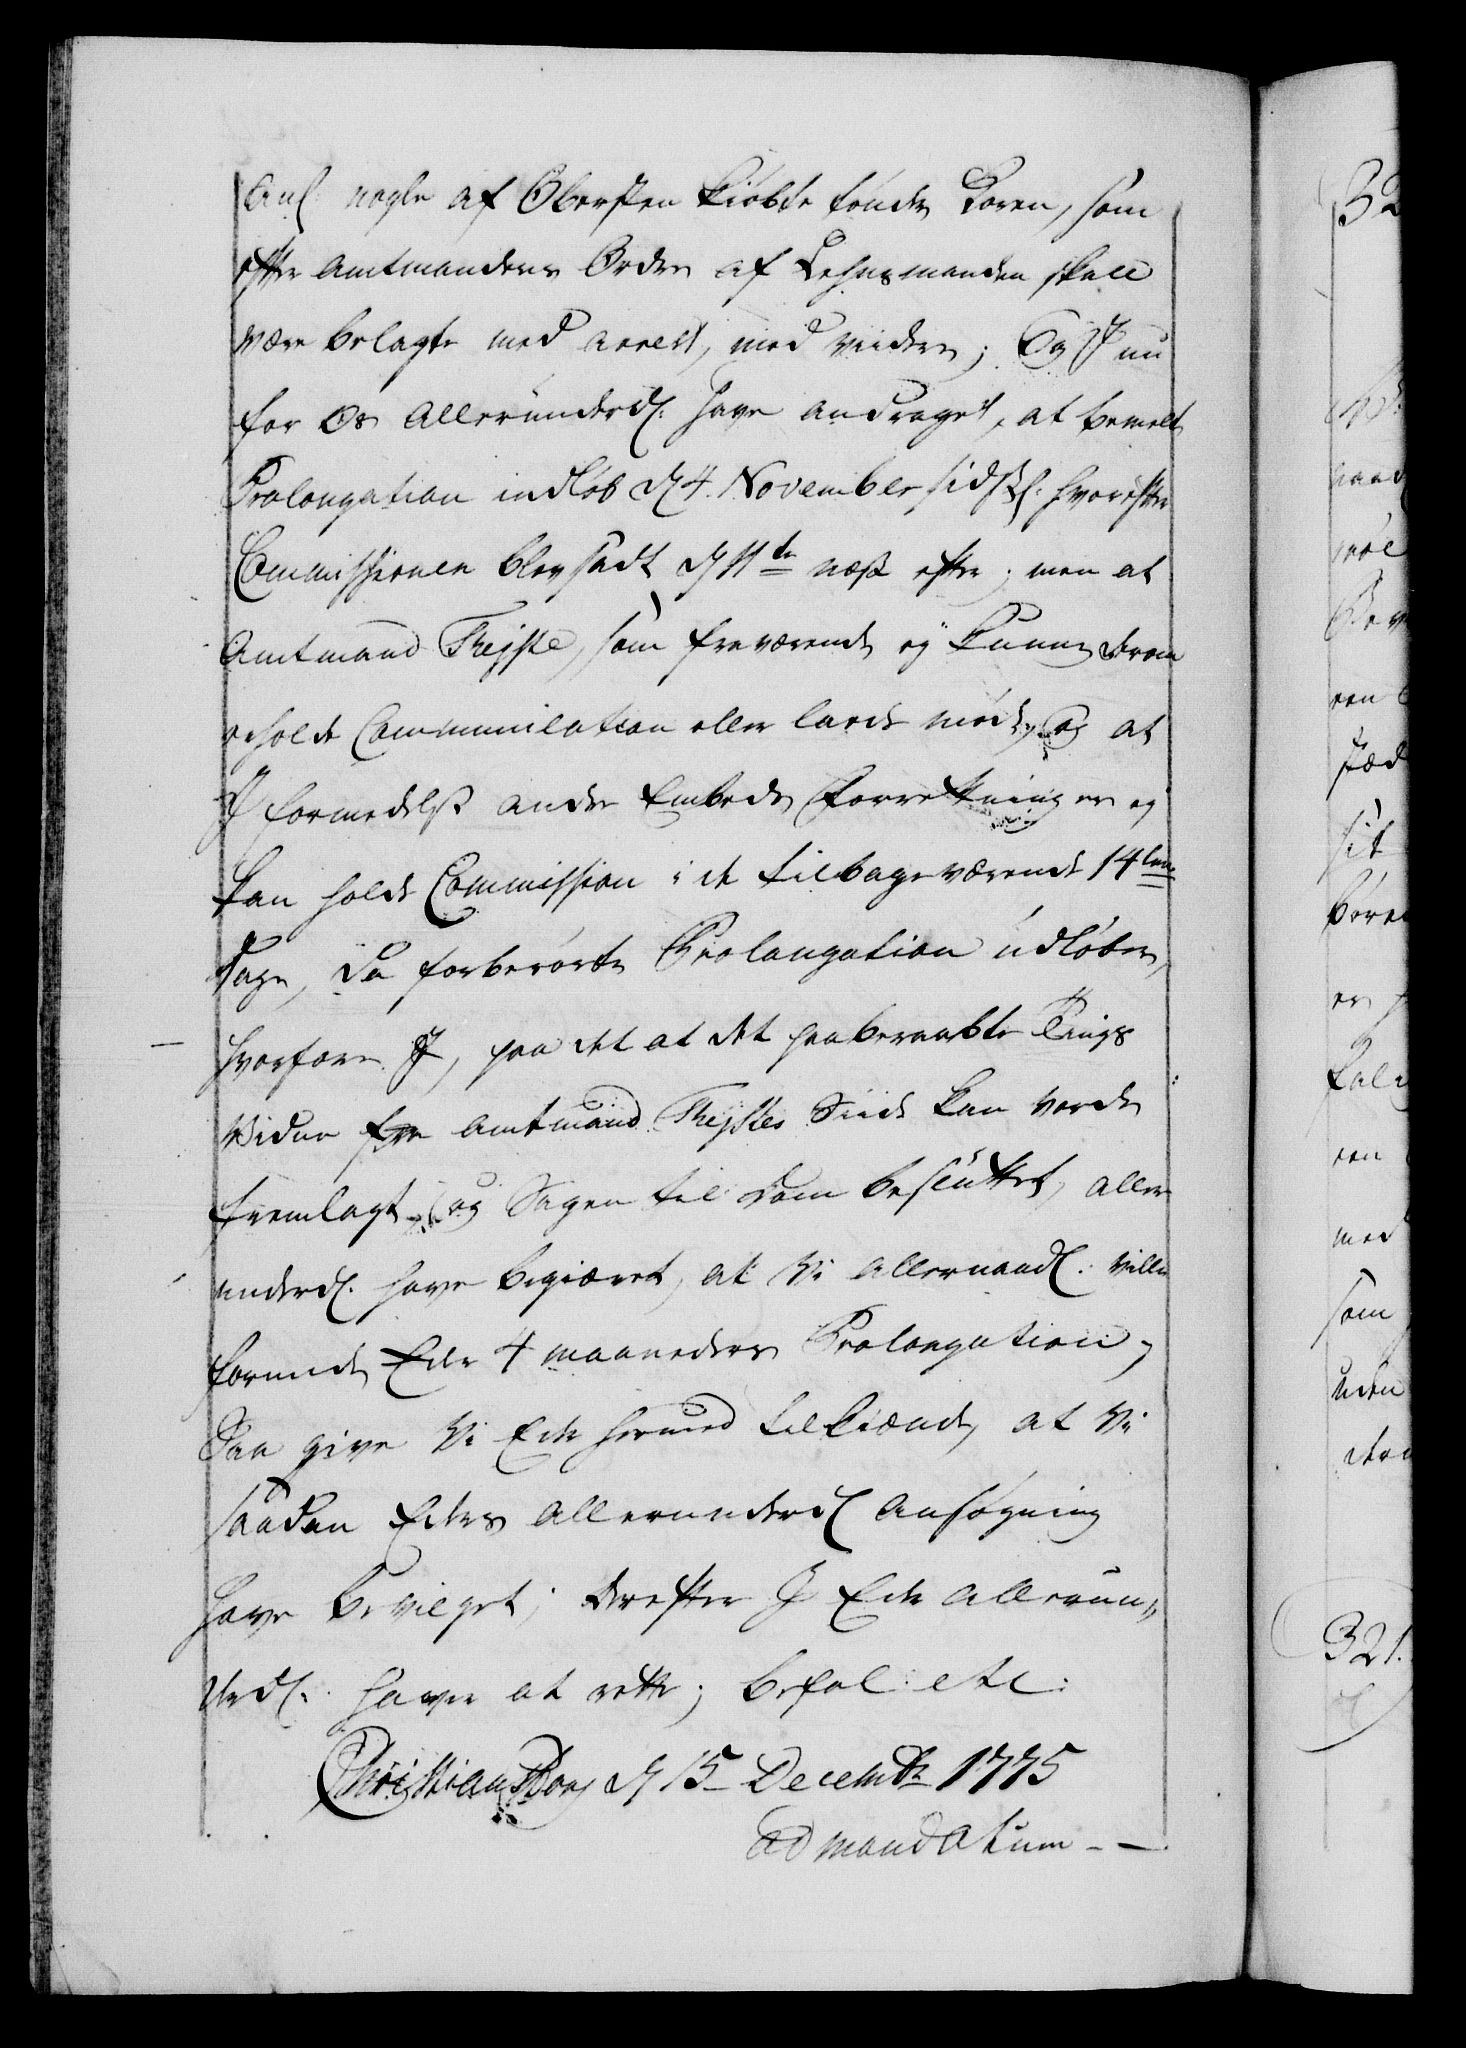 Anl nogle af Obersten kiøbte tønder Korn, som
efter Amtmandens Ordre af Lehnsmanden skall
være belagte med arrest, med viidere; Og I nu
for Os Allerunderd. have andraget, at bemelte
Prolongation indløb d 4. November sidstl. hvorefter
Commissionen blev sadt d 11te næst efter; men at
Amtmand Theiste, som fraværende ej kunne derom
erholde Communication eller lade møde, og at
I formedelst andre Embeds Forretninger ej
kan holde Commission i de tilbageværende 14ten
Dage, da forberørte Prolongation udløber,
hvorfore I, paa det at det paaberaabte Tings
Vidne fra Amtmand Theistes Siide kan vorde
fremlagt, og Sagen til Dom besluttet, aller
underd. have begiæret, at Vi Allernaad. ville
forunde Eder 4 maaneders Prolongation,
Saa give Vi Eder hermed tilkiende, at Vi
saadan Eders Allerunderd Ansøgning
have bevilget; derefter I Eder Allerun„
derd. haver at rette; Befal: etc:
ChristiansBorg d 15 Decembr 1775
ad mandatum - -
321.